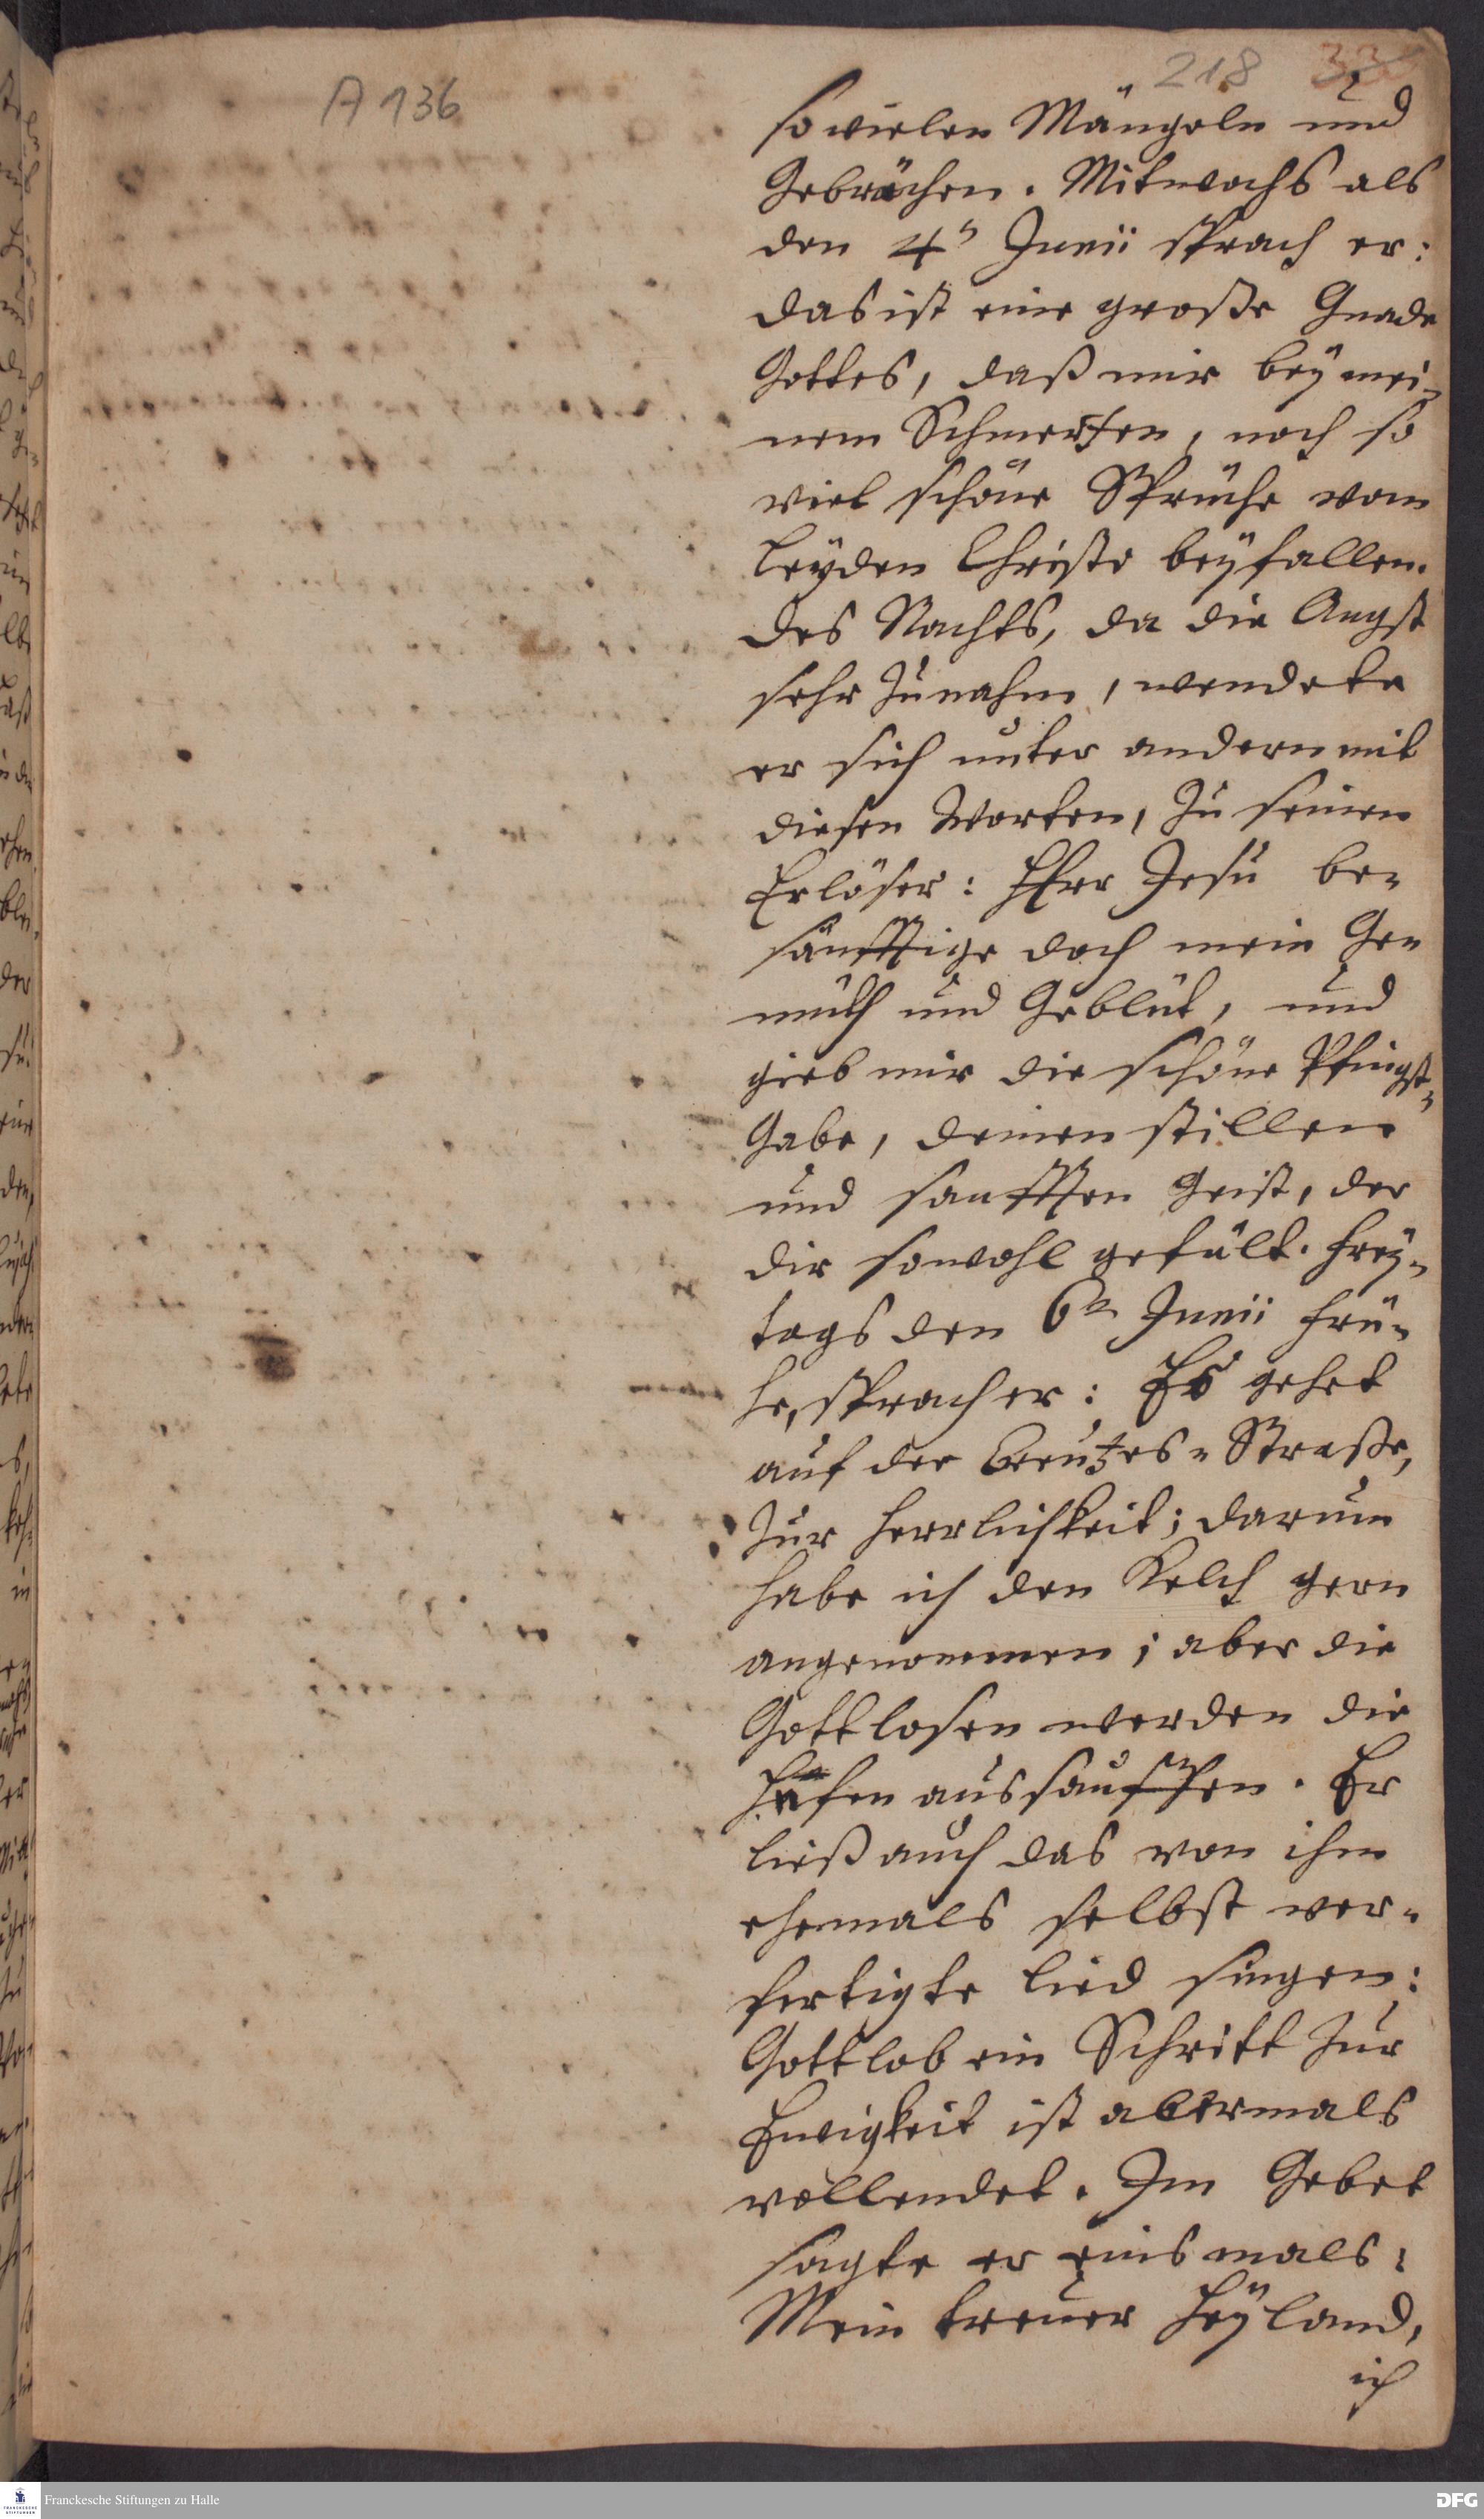 A 136
218
so vielen Mängeln und
Gebrächen. Mitwochs als
den 4n Junii sprach er:
das ist eine große Gnade
Gottes, daß mir bey mei-
nem Schmertzen, noch so
viel schöne Sprüche vom
Leyden Christi beyfallen.
des Nachts, da die Angst
sehr zunahm, wendete
er sich unter andern mit
diesen Worten, zu seinen
Erlöser: HErr Jesu be-
sänfftige doch mein Ge-
müth und Geblüt, und
gieb mir die schöne Pfingst-
Gabe, deinen stillen
und sanfften Geist, der
dir so wohl gefält. Frey-
tags den 6n Junii frü-
he, sprach er: Es gehet
auf der Creutzes-Straße,
zur Herrlichkeit; darum
habe ich den Kelch gern
angenommen; aber die
Gottlosen werden die
Hefen aussauffen. Er
ließ auch das von ihm
ehemals selbst ver-
fertigte Lied singen:
Gottlob ein Schritt zur
Ewigkeit ist abermals
vollendet. Im Gebet
sagte er einsmals:
Mein treuer Heyland,
ich
Franckesche Stiftungen zu Halle
DFG